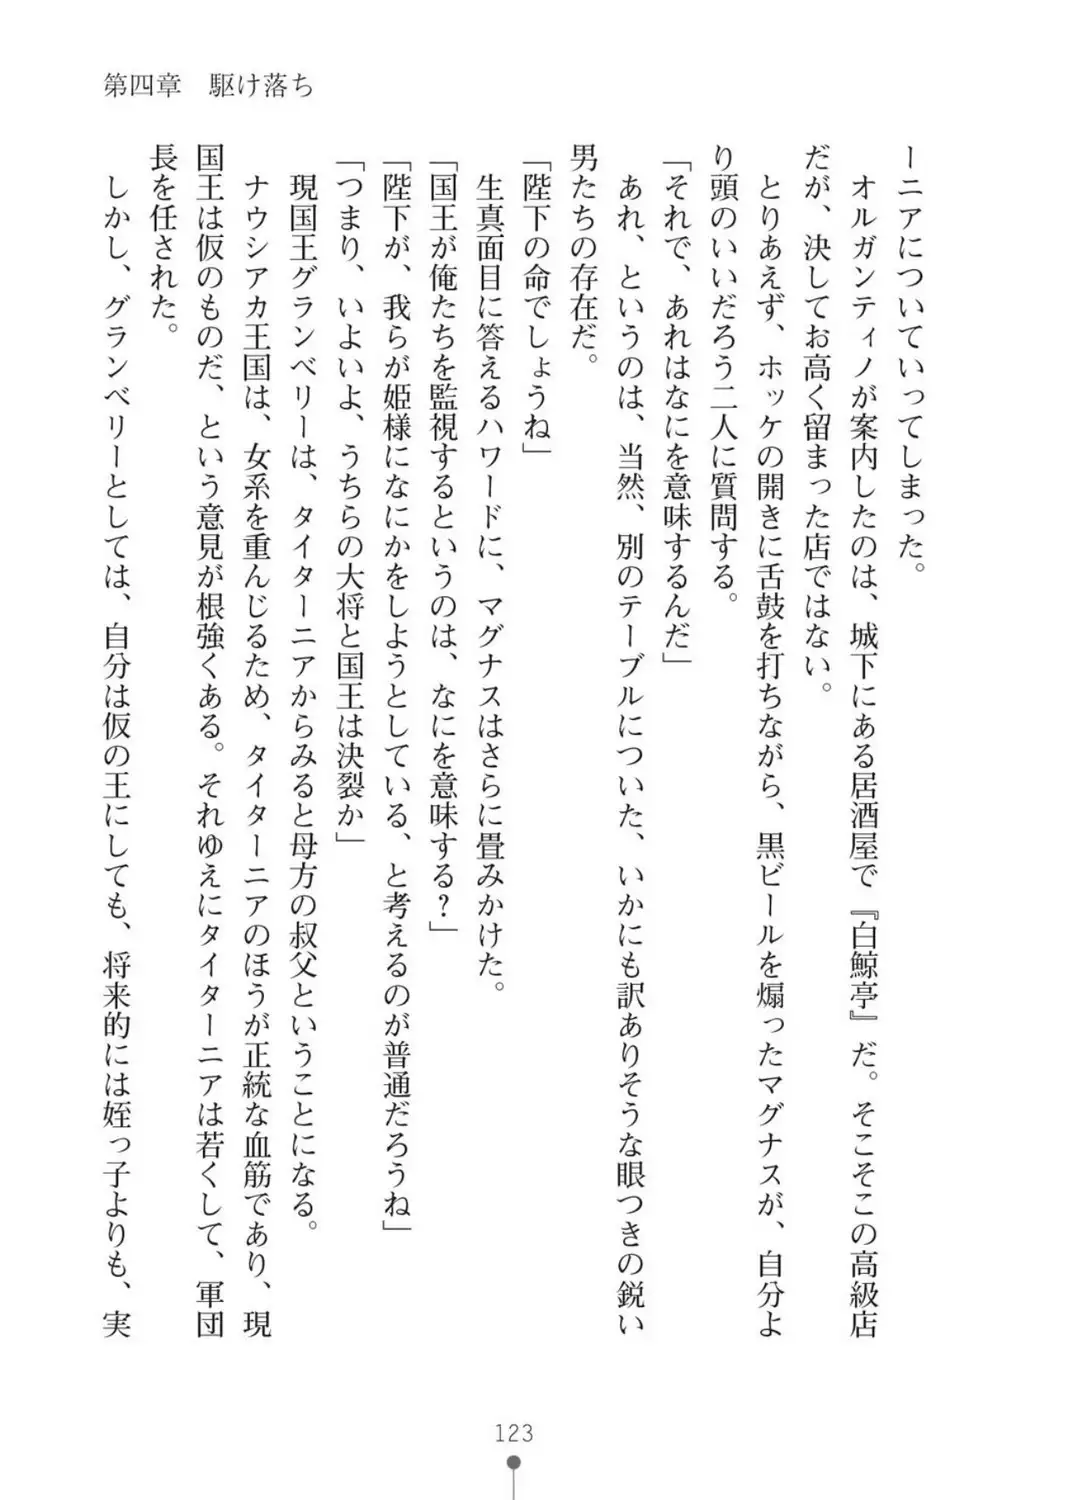 第四章　駆け落ち
ーニアについていってしまった。
オルガンティノが案内したのは、城下にある居酒屋で『白鯨亭』だ。そこそこの高級店
だが、決してお高く留まった店ではない。
とりあえず、ホッケの開きに舌鼓を打ちながら、黒ビールを煽ったマグナスが、自分よ
り頭のいいだろう二人に質問する。
「それで、あれはなにを意味するんだ」
あれ、というのは、当然、別のテーブルについた、いかにも訳ありそうな眼つきの鋭い
男たちの存在だ。
「陛下の命でしょうね」
生真面目に答えるハワードに、マグナスはさらに畳みかけた。
「国王が俺たちを監視するというのは、なにを意味する?」
「陛下が、我らが姫様になにかをしようとしている、と考えるのが普通だろうね」
「つまり、いよいよ、うちらの大将と国王は決裂か」
現国王グランベリーは、タイターニアからみると母方の叔父ということになる。
ナウシアカ王国は、女系を重んじるため、タイターニアのほうが正統な血筋であり、現
国王は仮のものだ、という意見が根強くある。それゆえにタイターニアは若くして、軍団
長を任された。
しかし、グランベリーとしては、自分は仮の王にしても、将来的には姪っ子よりも、実
123